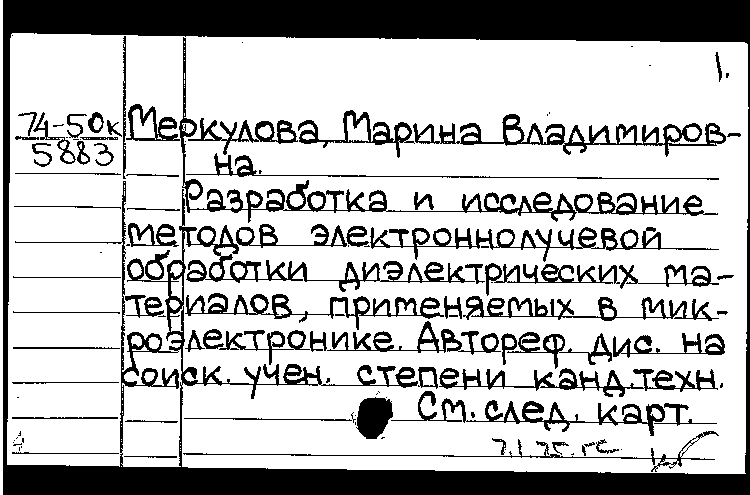 1.
74-50к Меркулова, Марина Владимиров-
5883 на.
Разработка и исследование
методов электроннолучевой
обработки диэлектрических ма-
териалов, применяемых в мик-
роэлектронике. Автореф. дис. на
соиск. учен. степени канд. техн.
См. след. карт.
4